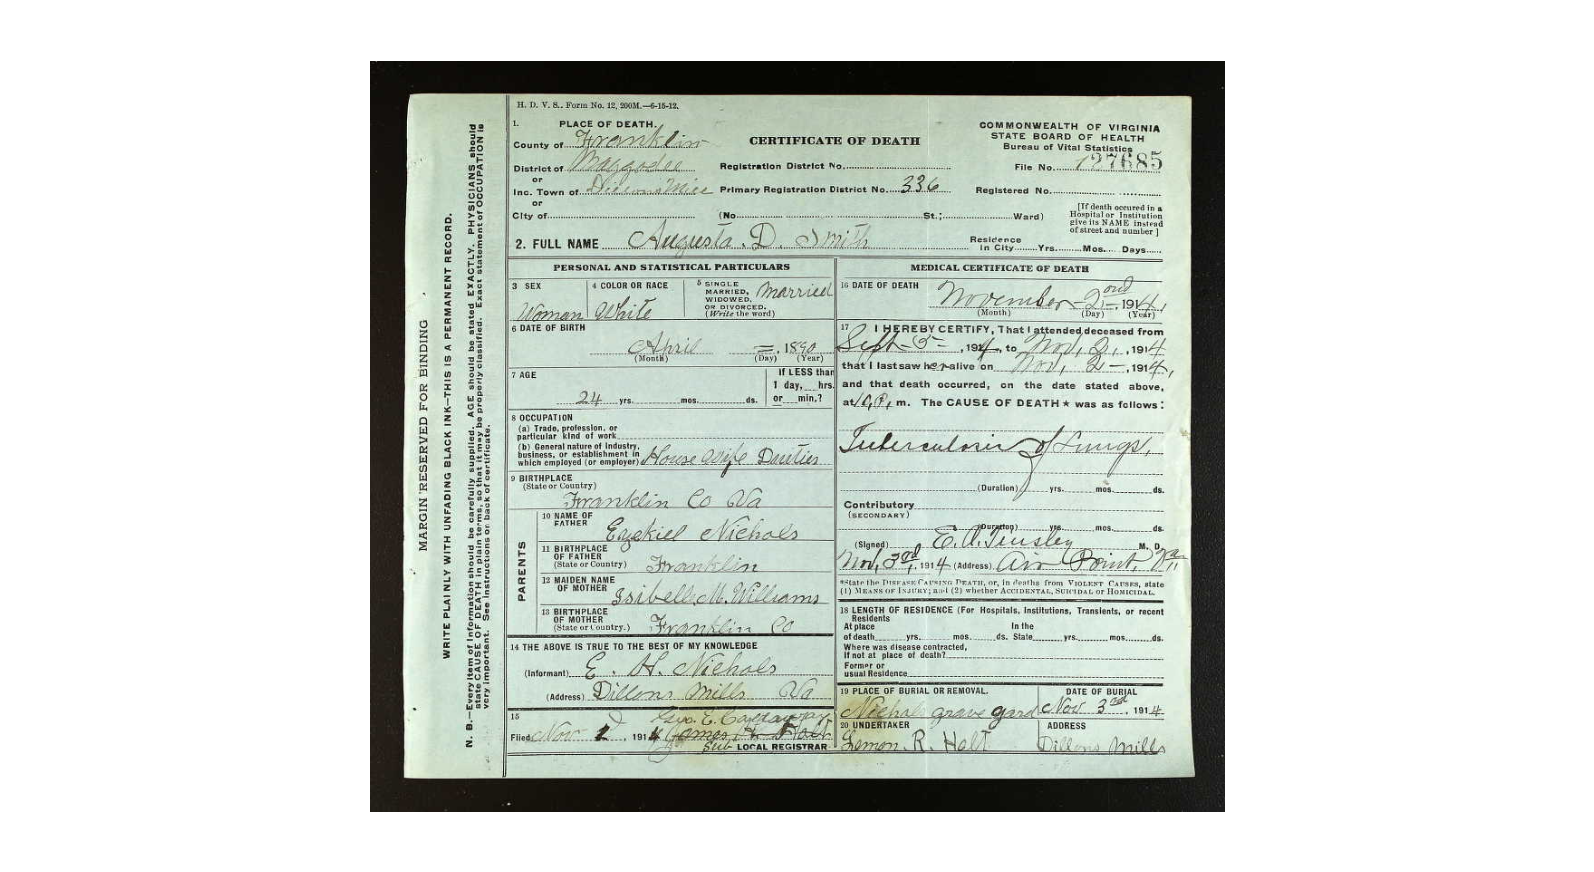 H. D. V. S.. Form No. 12, 200M.—6-15-12.
1. PLACE OF DEATH.
County of Franklin
District of Maggodee
or
Inc. Town of Dillons Mill
or
City of
CERTIFICATE OF DEATH
Registration District No.
Primary Registration District No. 336
(No. St.; Ward)
COMMONWEALTH OF VIRGINIA
STATE BOARD OF HEALTH
Bureau of Vital Statistics
File No. 27685
Registered No.
[If death occured in a
Hospital or Institution
give its NAME instead
of street and number]
2. FULL NAME Augusta. D. Smith
Residence
in City Yrs. Mos. Days
PERSONAL AND STATISTICAL PARTICULARS
3 SEX
Woman
4 COLOR OR RACE
White
5 SINGLE
MARRIED,
WIDOWED,
OR DIVORCED.
(Write the word)
Married
6 DATE OF BIRTH
April = , 1890
(Month) (Day) (Year)
7 AGE
24 yrs. mos. ds.
If LESS than
1 day, hrs.
or min.?
8 OCCUPATION
(a) Trade, profession, or
particular kind of work
(b) General nature of industry,
business, or establishment in
which employed (or employer) House Wife Dauties
9 BIRTHPLACE
(State or Country)
Franklin Co Va
PARENTS
10 NAME OF
FATHER
Ezekiel Nichols
11 BIRTHPLACE
OF FATHER
(State or Country)
Franklin
12 MAIDEN NAME
OF MOTHER
Isibelle M. Williams
13 BIRTHPLACE
OF MOTHER
(State or Country.)
Franklin Co
14 THE ABOVE IS TRUE TO THE BEST OF MY KNOWLEDGE
(Informant) E. H. Nichols
(Address) Dillons Mills Va
15
Geo. E. Callaway
Filed Nov 2, 1914 James
Sub LOCAL REGISTRAR
MEDICAL CERTIFICATE OF DEATH
16 DATE OF DEATH
November 2nd, 1914,
(Month) (Day) (Year)
17 I HEREBY CERTIFY, That I attended deceased from
Sept 5, 1914, to Nov, 2, , 1914
that I last saw her alive on Nov, 2, 1914,
and that death occurred, on the date stated above,
at 10,P, m. The CAUSE OF DEATH* was as follows:
Tuberculosis of Lungs,
(Duration) yrs. mos. ds.
Contributory
(SECONDARY)
(Duration) yrs. mos. ds.
(Signed) E. A. Tinsley M. D.
Nov, 3rd, 1914 (Address) Air Point, Va,
*State the DISEASE CAUSING DEATH, or, in deaths from VIOLENT CAUSES, state
(1) MEANS OF INJURY; and (2) whether ACCIDENTAL, SUICIDAL or HOMICIDAL.
18 LENGTH OF RESIDENCE (For Hospitals, Institutions, Transients, or recent
Residents
At place In the
of death yrs. mos. ds. State yrs. mos. ds.
Where was disease contracted,
If not at place of death?
Former or
usual Residence
19 PLACE OF BURIAL OR REMOVAL.
Nichols grave gard
DATE OF BURIAL
Nov 3rd, 1914
20 UNDERTAKER
Lemon. R. Halt
ADDRESS
Dillons Mills
MARGIN RESERVED FOR BINDING
WRITE PLAINLY WITH UNFADING BLACK INK—THIS IS A PERMANENT RECORD.
N. B.—Every item of information should be carefully supplied. AGE should be stated EXACTLY. PHYSICIANS should
state CAUSE OF DEATH in plain terms, so that it may be properly classified. Exact statement of OCCUPATION is
very important. See instructions on back of certificate.